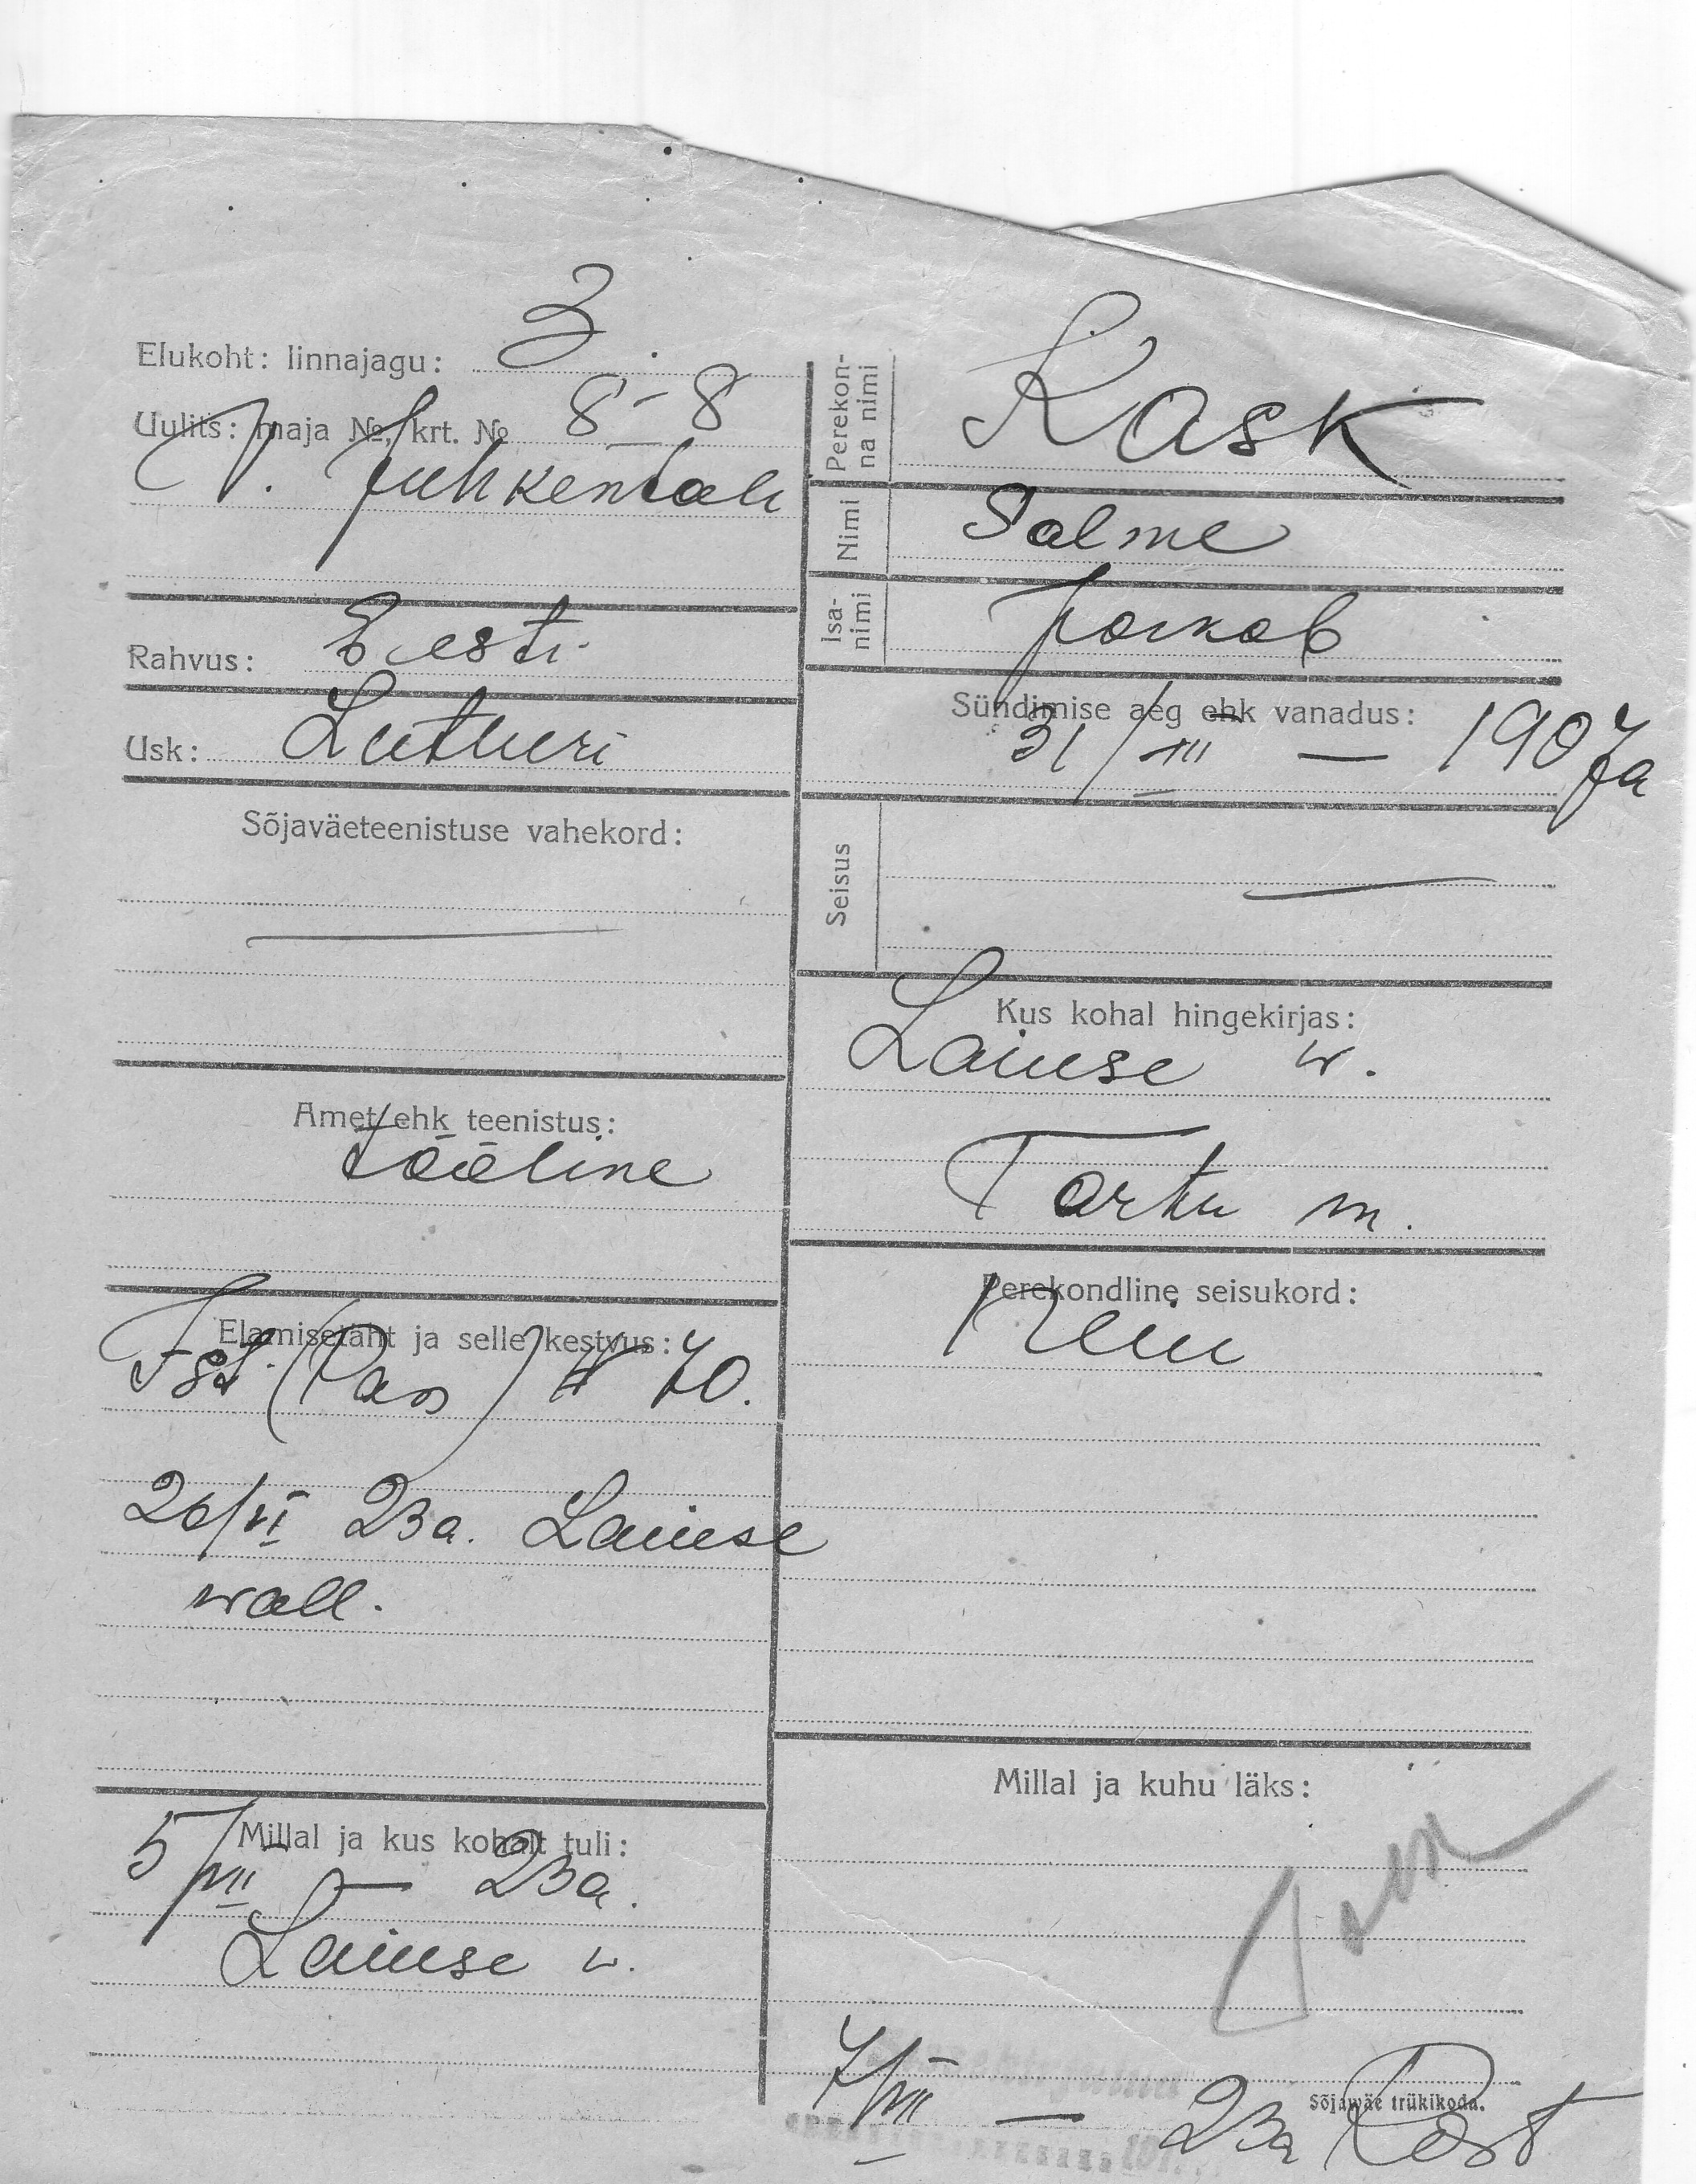 3
Elukoht: linnajagu:
Uulits: maja №, krt. № 8-8
V. Juhkentali
Rahvus: Eesti
Usk: Lutheri
Sõjaväeteenistuse vahekord:
Amet ehk teenistus:
tööline
Elamisetäht ja selle kestvus:
(Pass) № 70.
20/VI 23a. Laiuse
wall.
Millal ja kus kohalt tuli:
5/VII — 23a.
Laiuse w.
Perekon-
na nimi
Kask
Nimi
Salme
Isa-
nimi
Jaakob
Sündimise aeg ehk vanadus:
31/III — 1907a
Seisus
Kus kohal hingekirjas:
Laiuse w.
Tartu m.
Perekondline seisukord:
Millal ja kuhu läks:
Sõjawäe trükikoda.
7/VII — 23a